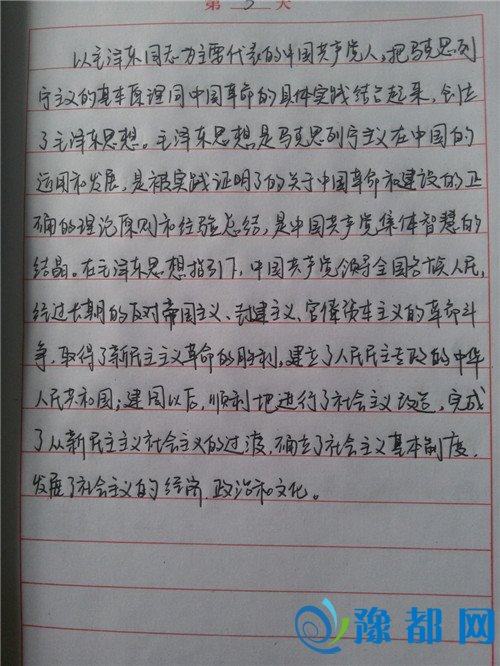 第 3 天
以毛泽东同志为主要代表的中国共产党人,把马克思列
宁主义的基本原理同中国革命的具体实践结合起来,创立
了毛泽东思想。毛泽东思想是马克思列宁主义在中国的
运用和发展,是被实践证明了的关于中国革命和建设的正
确的理论原则和经验总结,是中国共产党集体智慧的
结晶。在毛泽东思想指引下,中国共产党领导全国各族人民,
经过长期的反对帝国主义、封建主义、官僚资本主义的革命斗
争,取得了新民主主义革命的胜利,建立了人民民主专政的中华
人民共和国;建国以后,顺利地进行了社会主义改造,完成
了从新民主主义社会主义的过渡,确立了社会主义基本制度,
发展了社会主义的经济、政治和文化。
豫都网